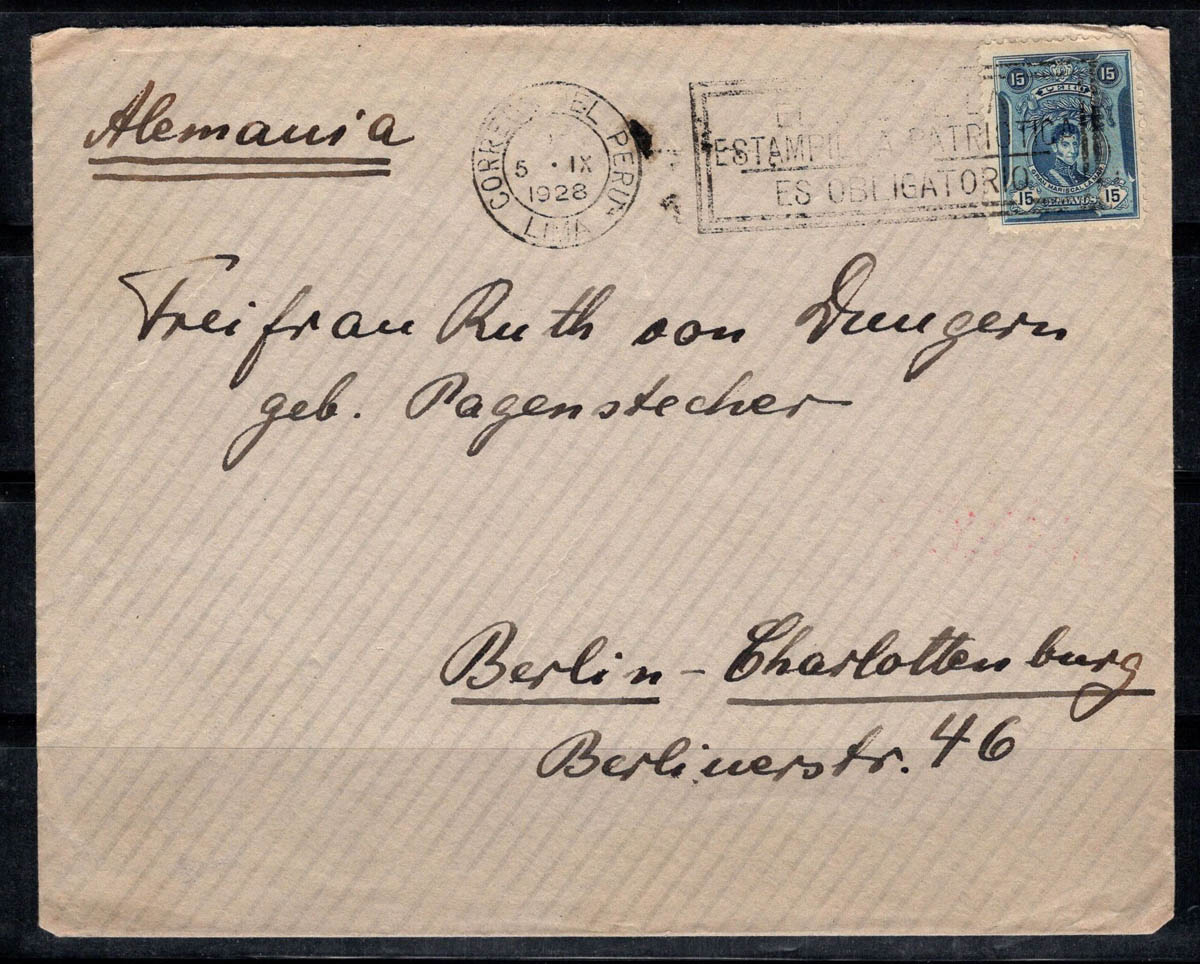 Alemania
CORREOS DEL PERU
5 · IX
1928
LIMA
ESTAMPILLA PATRIOTICA
ES OBLIGATORIO
15 15
PERU
GRAN MARISCAL LA MAR
15 CENTAVOS 15
Freifrau Ruth von Dungern
geb. Pagenstecher
Berlin - Charlottenburg
Berlinerstr. 46